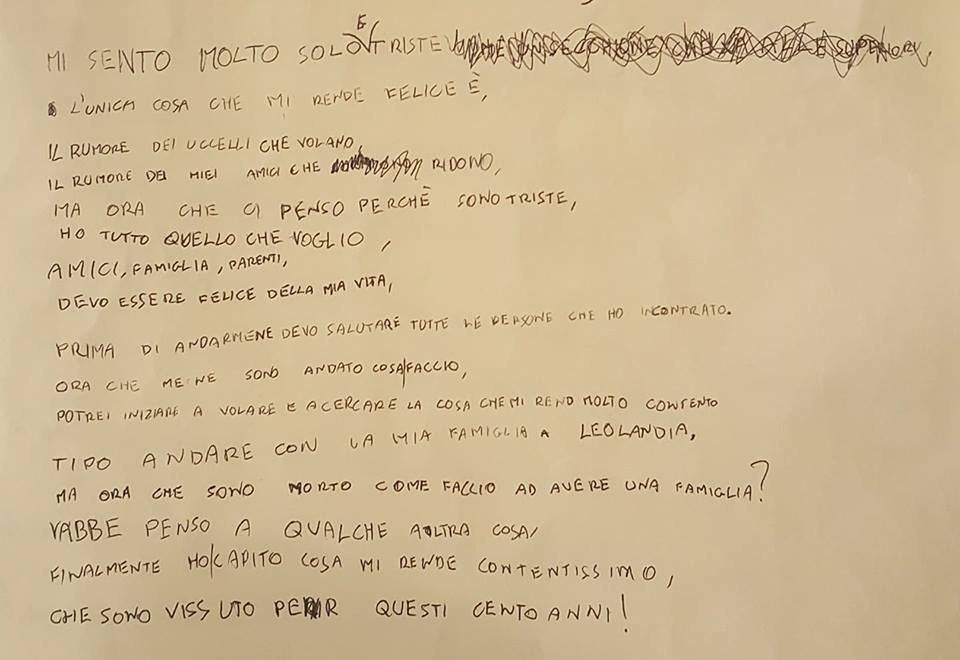 MI SENTO MOLTO SOLO E TRISTE
L'UNICA COSA CHE MI RENDE FELICE È,
IL RUMORE DEI UCCELLI CHE VOLANO,
IL RUMORE DEI MIEI AMICI CHE RIDONO,
MA ORA CHE CI PENSO PERCHÈ SONO TRISTE,
HO TUTTO QUELLO CHE VOGLIO,
AMICI, FAMIGLIA, PARENTI,
DEVO ESSERE FELICE DELLA MIA VITA,
PRIMA DI ANDARMENE DEVO SALUTARE TUTTE LE PERSONE CHE HO INCONTRATO.
ORA CHE ME NE SONO ANDATO COSA FACCIO,
POTREI INIZIARE A VOLARE E A CERCARE LA COSA CHE MI REND MOLTO CONTENTO
TIPO ANDARE CON LA MIA FAMIGLIA A LEOLANDIA,
MA ORA CHE SONO MORTO COME FACCIO AD AVERE UNA FAMIGLIA?
VABBE PENSO A QUALCHE ALTRA COSA,
FINALMENTE HO CAPITO COSA MI RENDE CONTENTISSIMO,
CHE SONO VISSUTO PER QUESTI CENTO ANNI!